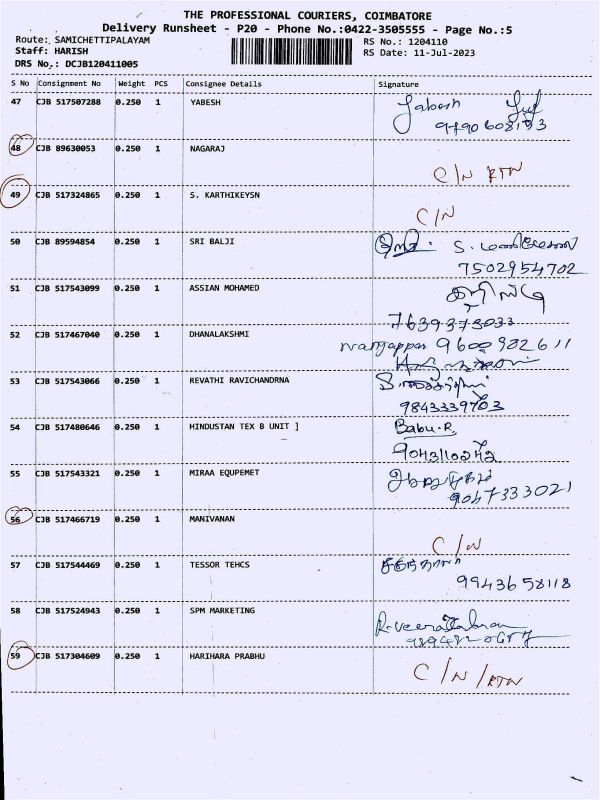 THE PROFESSIONAL COURIERS, COIMBATORE
Delivery Runsheet - P20 - Phone No.:0422-3505555 - Page No.:5
Route: SAMICHETTIPALAYAM RS No.: 1204110
Staff: HARISH RS Date: 11-Jul-2023
DRS No.: DCJB120411005
S No Consignment No Weight PCS Consignee Details Signature
47 CJB 517507288 0.250 1 YABESH Yabesh
48 CJB 89630053 0.250 1 NAGARAJ
C/N RTN
49 CJB 517324865 0.250 1 S. KARTHIKEYSN
C/N
50 CJB 89594854 0.250 1 SRI BALJI
7502954702
51 CJB 517543099 0.250 1 ASSIAN MOHAMED
7639373033
52 CJB 517467040 0.250 1 DHANALAKSHMI 9600982611
53 CJB 517543066 0.250 1 REVATHI RAVICHANDRNA
9843339703
54 CJB 517480646 0.250 1 HINDUSTAN TEX B UNIT ] Babu.R
55 CJB 517543321 0.250 1 MIRAA EQUPEMET
9047333021
56 CJB 517466719 0.250 1 MANIVANAN
C/N
57 CJB 517544469 0.250 1 TESSOR TEHCS
9943658118
58 CJB 517524943 0.250 1 SPM MARKETING
59 CJB 517304609 0.250 1 HARIHARA PRABHU
C/N/RTN